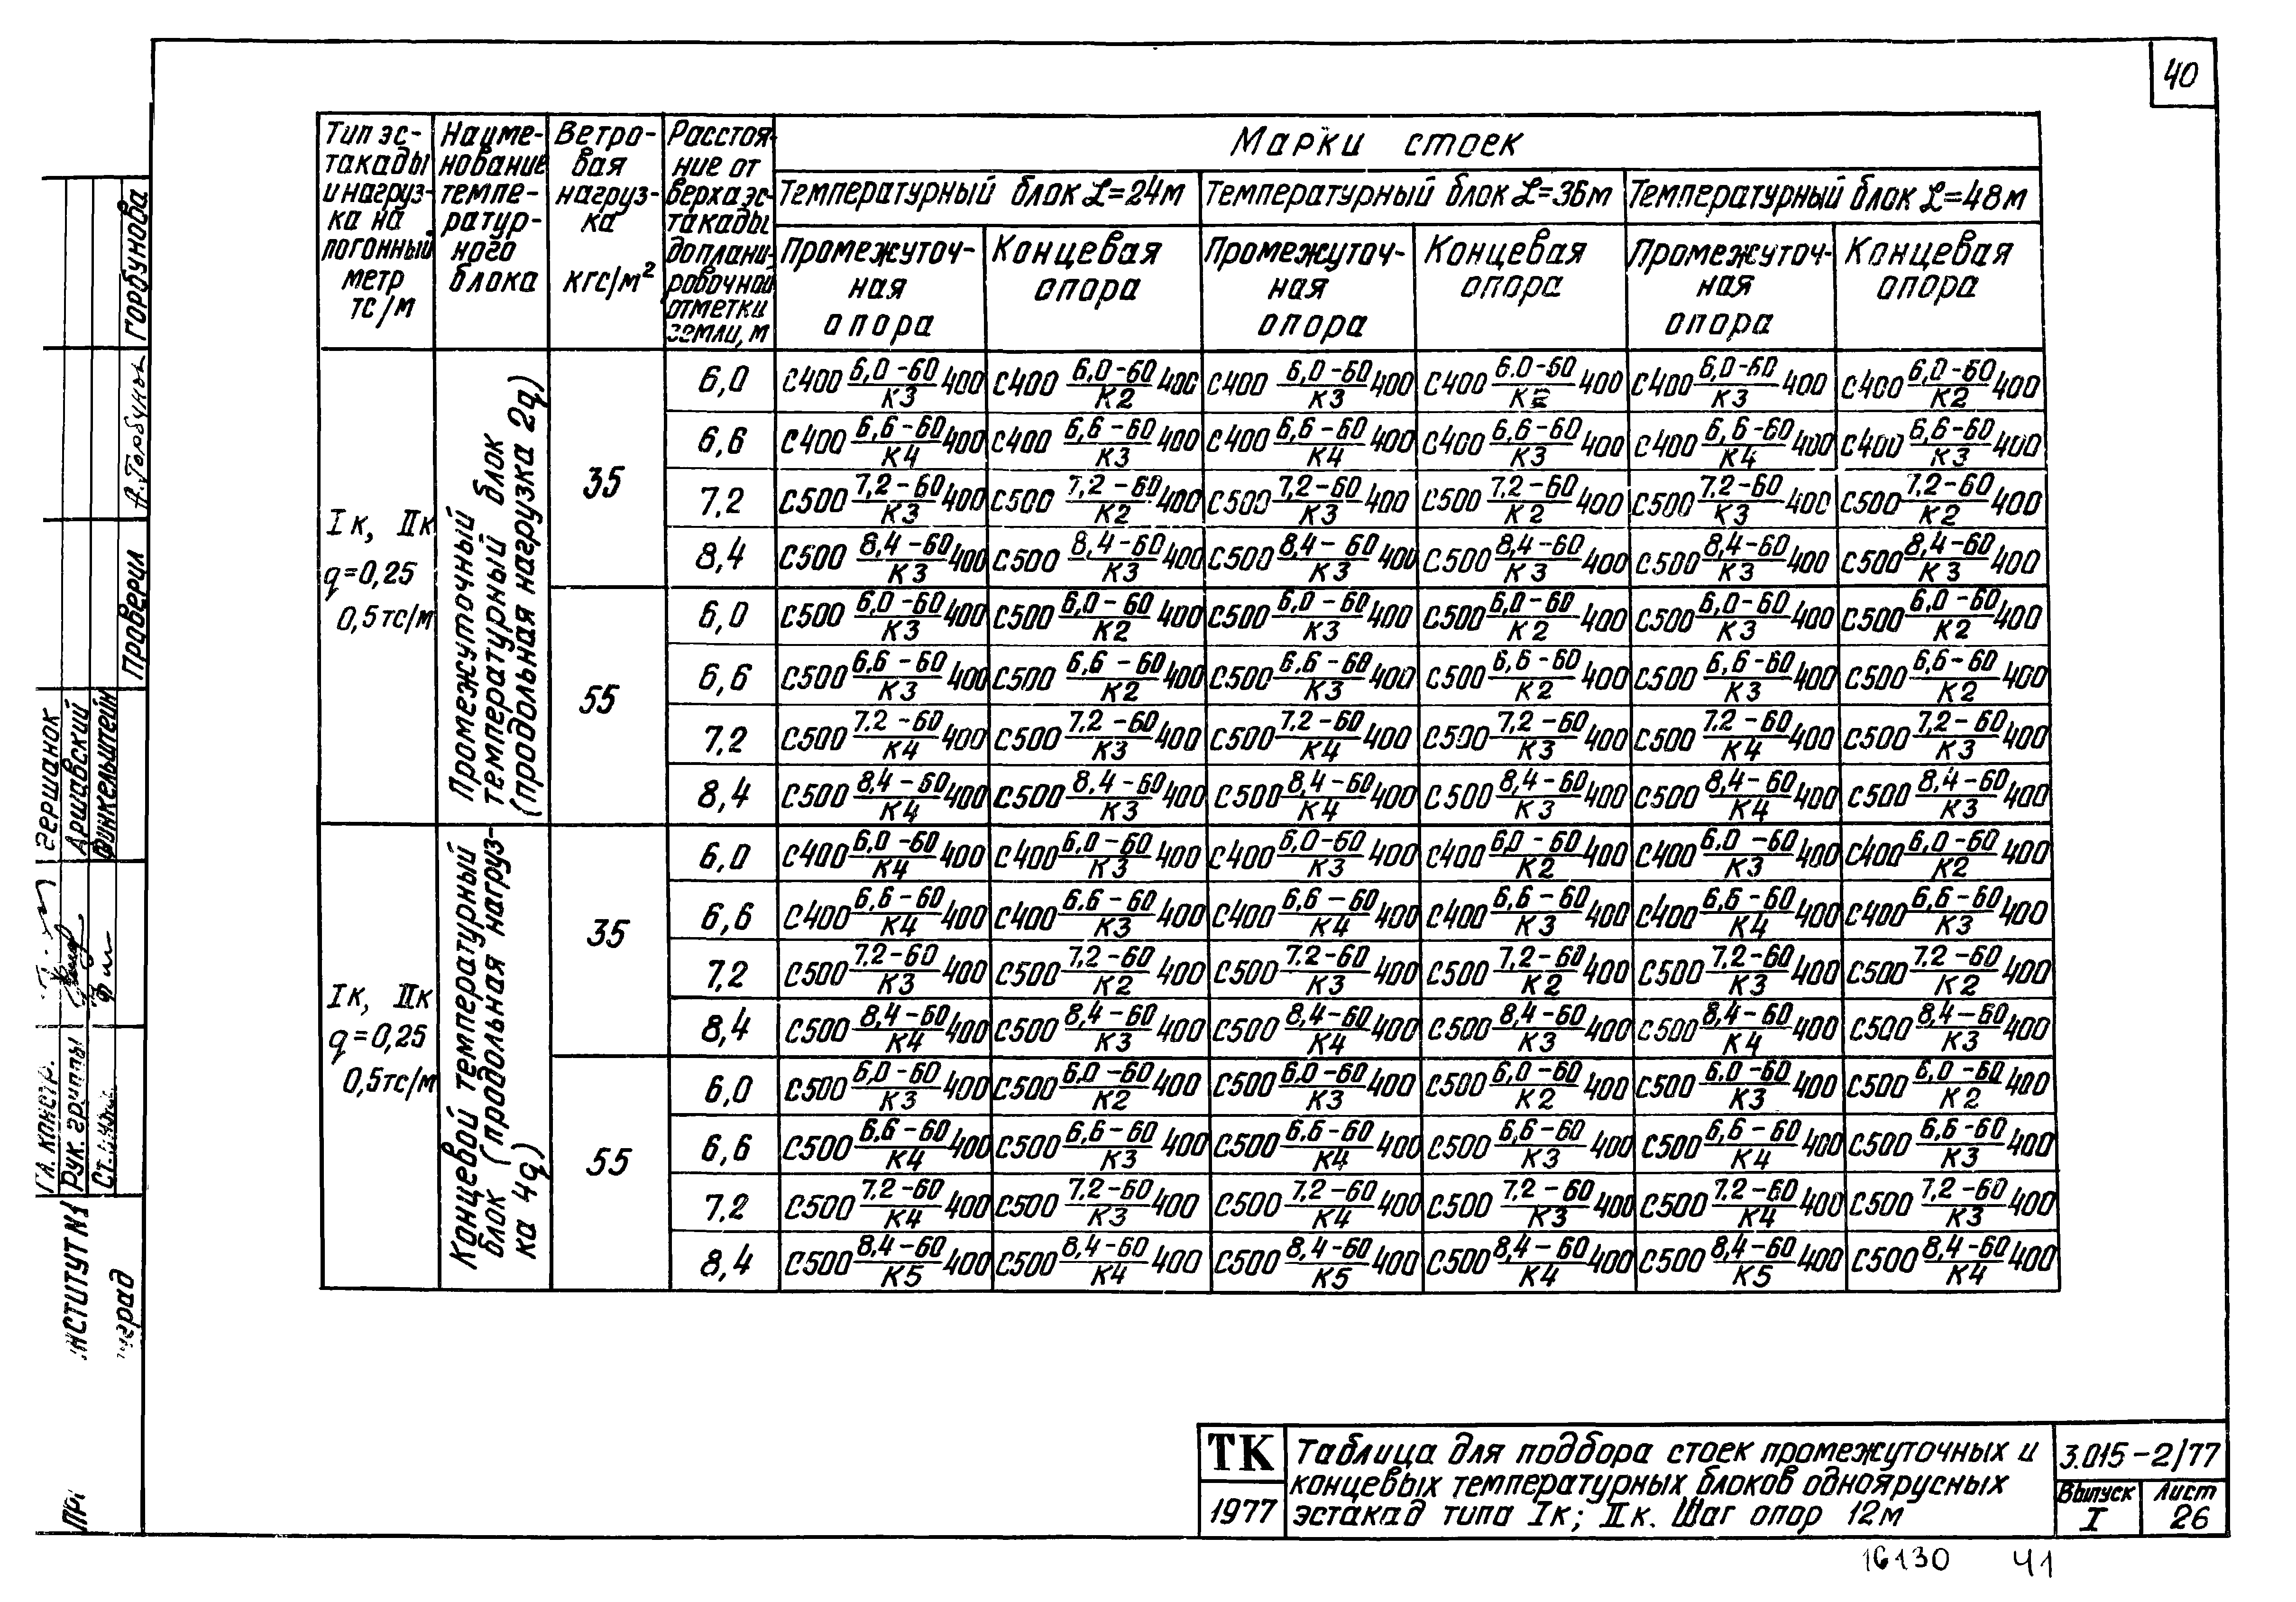 40
Тип эс-
такады
и нагруз-
ка на
погонный
метр
тс/м
Наиме-
нование
темпе-
ратур-
ного
блока
Ветро-
вая
нагруз-
ка
кгс/м²
Расстоя-
ние от
верха эс-
такады
до плани-
ровочной
отметки
земли, м
Марки стоек
Температурный блок ℒ=24м Температурный блок ℒ=36м Температурный блок ℒ=48м
Промежуточ-
ная
опора
Концевая
опора
Промежуточ-
ная
опора
Концевая
опора
Промежуточ-
ная
опора
Концевая
опора
Iк, IIк
q=0,25
0,5тс/м
Промежуточный
температурный блок
(продольная нагрузка 2q)
35
6,0 С400 6,0-60/К3 400 С400 6,0-60/К2 400 С400 6,0-60/К3 400 С400 6.0-60/К2 400 С400 6,0-60/К3 400 С400 6,0-60/К2 400
6,6 С400 6,6-60/К4 400 С400 6,6-60/К3 400 С400 6,6-60/К4 400 С400 6,6-60/К3 400 С400 6,6-60/К4 400 С400 6,6-60/К3 400
7,2 С500 7,2-60/К3 400 С500 7,2-60/К2 400 С500 7,2-60/К3 400 С500 7,2-60/К2 400 С500 7,2-60/К3 400 С500 7,2-60/К2 400
8,4 С500 8,4-60/К3 400 С500 8,4-60/К3 400 С500 8,4-60/К3 400 С500 8,4-60/К3 400 С500 8,4-60/К3 400 С500 8,4-60/К3 400
55
6,0 С500 6,0-60/К3 400 С500 6,0-60/К2 400 С500 6,0-60/К3 400 С500 6,0-60/К2 400 С500 6,0-60/К3 400 С500 6,0-60/К2 400
6,6 С500 6,6-60/К3 400 С500 6,6-60/К2 400 С500 6,6-60/К3 400 С500 6,6-60/К2 400 С500 6,6-60/К3 400 С500 6,6-60/К2 400
7,2 С500 7,2-60/К4 400 С500 7,2-60/К3 400 С500 7,2-60/К4 400 С500 7,2-60/К3 400 С500 7,2-60/К4 400 С500 7,2-60/К3 400
8,4 С500 8,4-60/К4 400 С500 8,4-60/К3 400 С500 8,4-60/К4 400 С500 8,4-60/К3 400 С500 8,4-60/К4 400 С500 8,4-60/К3 400
Iк, IIк
q=0,25
0,5тс/м
Концевой температурный
блок (продольная нагруз-
ка 4q)
35
6,0 С400 6,0-60/К4 400 С400 6,0-60/К3 400 С400 6,0-60/К3 400 С400 6,0-60/К2 400 С400 6.0-60/К3 400 С400 6,0-60/К2 400
6,6 С400 6,6-60/К4 400 С400 6.6-60/К3 400 С400 6,6-60/К4 400 С400 6,6-60/К3 400 С400 6,6-60/К4 400 С400 6,6-60/К3 400
7,2 С500 7.2-60/К3 400 С500 7,2-60/К2 400 С500 7.2-60/К3 400 С500 7,2-60/К2 400 С500 7,2-60/К3 400 С500 7,2-60/К2 400
8,4 С500 8,4-60/К4 400 С500 8,4-60/К3 400 С500 8,4-60/К4 400 С500 8,4-60/К3 400 С500 8,4-60/К4 400 С500 8,4-60/К3 400
55
6,0 С500 6,0-60/К3 400 С500 6,0-60/К2 400 С500 6,0-60/К3 400 С500 6,0-60/К2 400 С500 6,0-60/К3 400 С500 6,0-60/К2 400
6,6 С500 6,6-60/К4 400 С500 6,6-60/К3 400 С500 6,6-60/К4 400 С500 6,6-60/К3 400 С500 6,6-60/К4 400 С500 6,6-60/К3 400
7,2 С500 7,2-60/К4 400 С500 7,2-60/К3 400 С500 7,2-60/К4 400 С500 7,2-60/К3 400 С500 7,2-60/К4 400 С500 7,2-60/К3 400
8,4 С500 8,4-60/К5 400 С500 8,4-60/К4 400 С500 8,4-60/К5 400 С500 8,4-60/К4 400 С500 8,4-60/К5 400 С500 8,4-60/К4 400
Гл. констр. Гершанок
Рук. группы Аршавский
Финкельштейн
Проверил А.Горбунов Горбунова
ТК
1977
Таблица для подбора стоек промежуточных и
концевых температурных блоков одноярусных
эстакад типа Iк; IIк. Шаг опор 12м
3.015-2/77
Выпуск
I
Лист
26
16130 41